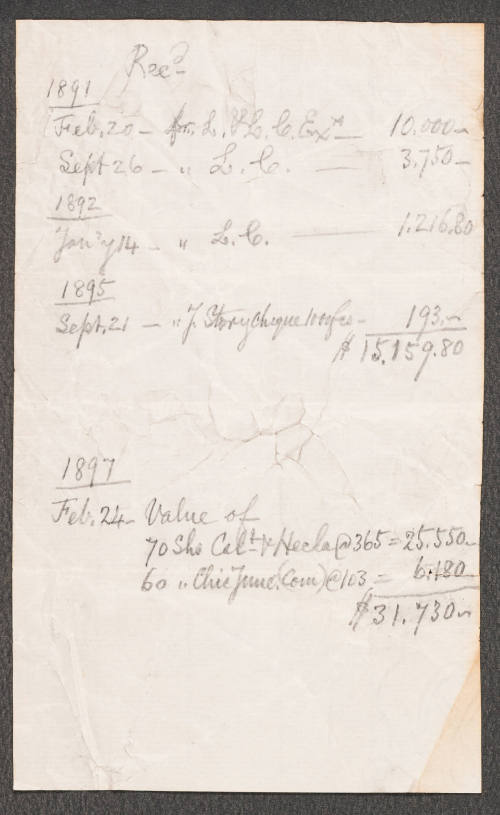 Recd
1891
Feb. 20 — fr. L. & L. C. Exr — 10.000—
Sept 26 — " L. C. — 3.750—
1892
Jan'y 14 — " L. C. — 1.216.80
1895
Sept. 21 — " J. Story Cheque 1000fcs — 193.—
$15.159.80
1897
Feb. 24 — Value of
70 Shs Calt & Hecla @ 365 = 25.550—
60 " Chic Junc. (Com) @ 103 = 6.180
$31.730—